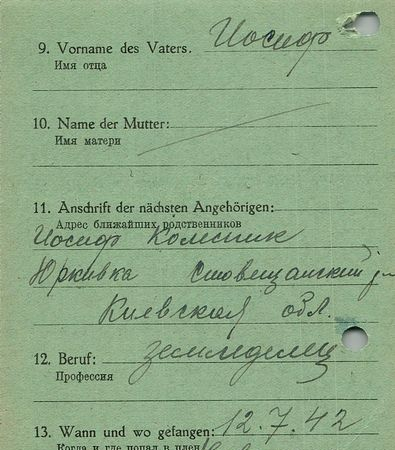 9. Vorname des Vaters. Иосиф
Имя отца
10. Name der Mutter:
Имя матери
11. Anschrift der nächsten Angehörigen:
Адрес ближайших родственников
Иосиф Колесник
Юркивка Ставещанский
Киевская обл.
12. Beruf: земледелец
Профессия
13. Wann und wo gefangen: 12.7.42
Когда и где попал в плен